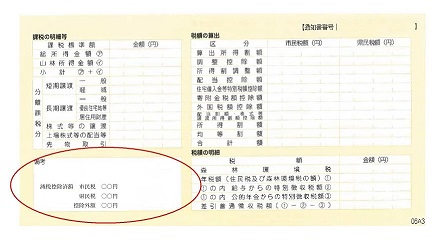 【通知書番号 】
課税の明細等
課税標準額 金額（円）
総所得金額㋐
山林所得金額㋑
小計㋐+㋑
分離課税分
短期譲渡 一般
軽減
長期譲渡 一般
優良住宅地等
居住用財産
株式等の譲渡
上場株式等の配当等
先物取引
税額の算出
区分 市民税額（円） 県民税額（円）
算出所得割額
調整控除額
所得割調整額
配当控除額
住宅借入金等特別税額控除額
寄附金税額控除額
外国税額控除額
所得割額
均等割額
合計額
税額の明細
税額 金額（円）
森林環境税
年税額（住民税及び森林環境税の額）①
①の内 給与からの特別徴収税額②
①の内 公的年金からの特別徴収税額③
差引普通徴収税額（①－②－③）
備考
減税控除済額 市民税 〇〇円
県民税 〇〇円
控除外額 〇〇円
06A3